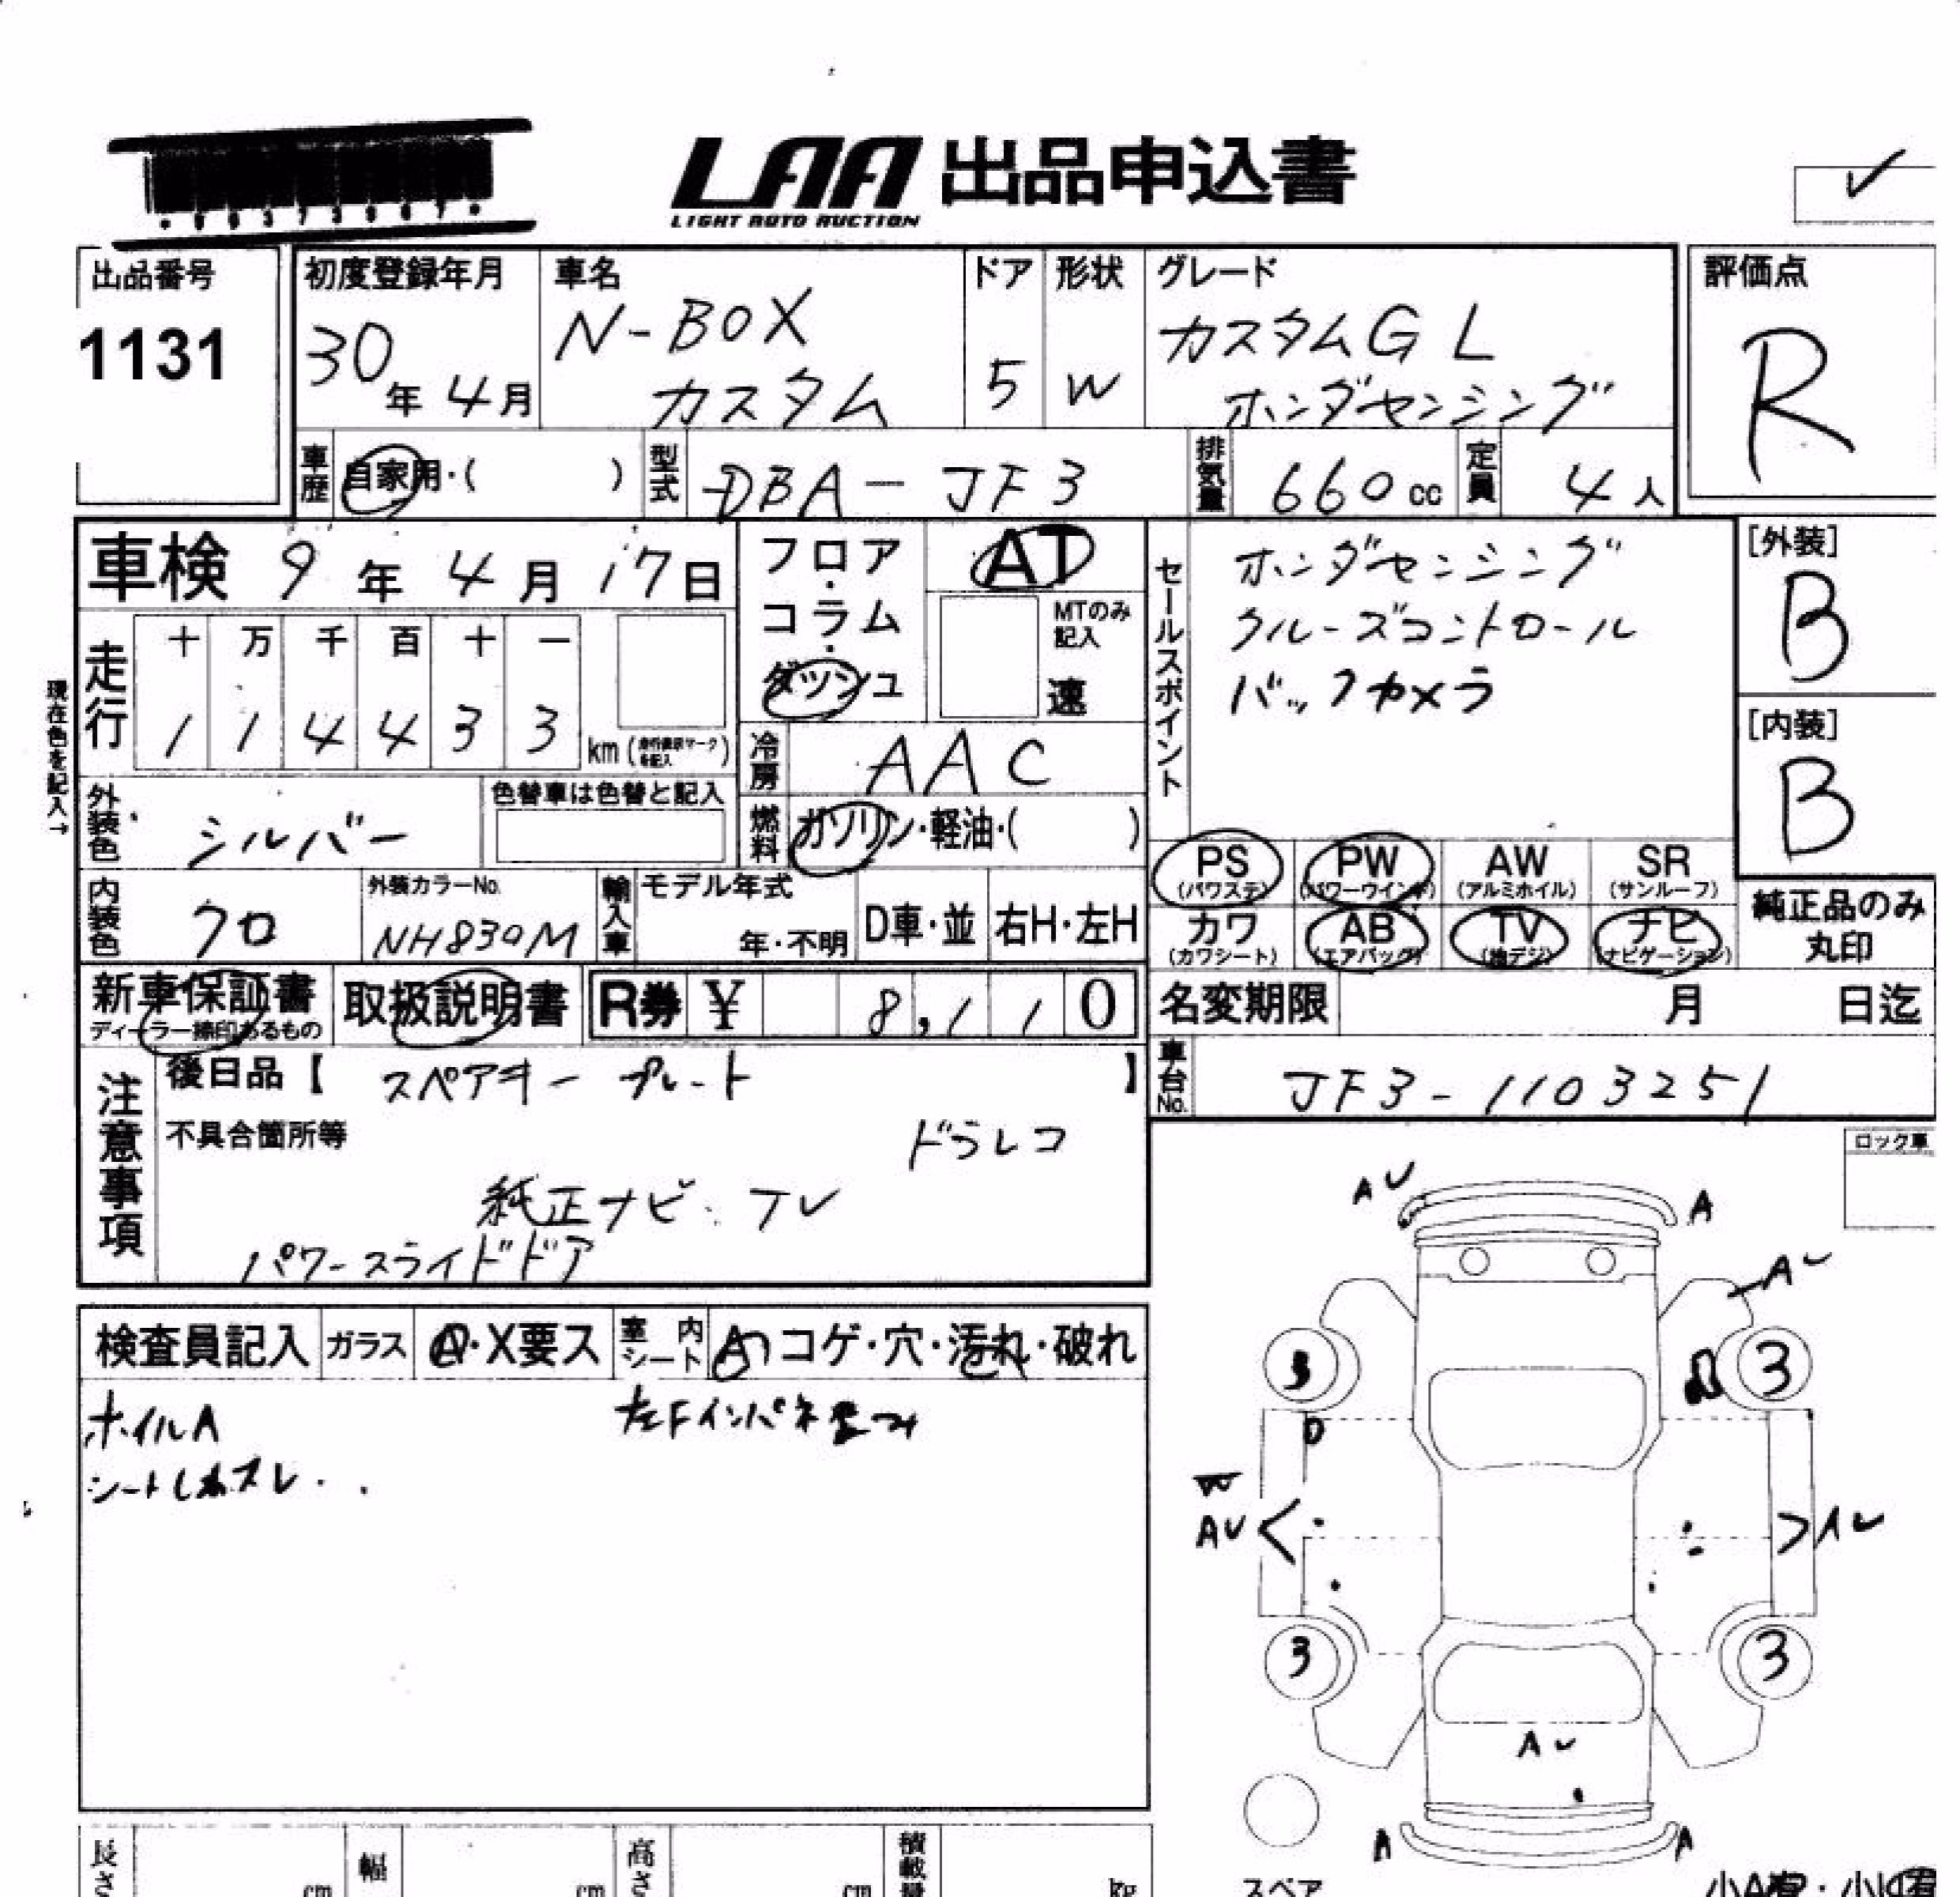 LAA 出品申込書
LIGHT AUTO AUCTION
出品番号
1131
初度登録年月
30年 4月
車名
N-BOX
カスタム
ドア
5
形状
W
グレード
カスタムG L
ホンダセンシング
評価点
R
車歴 自家用・( )
型式 DBA-JF3
排気量 660cc
定員 4人
車検 9年 4月 17日
フロア・コラム・ダッシュ
AT
MTのみ記入
速
走行
十 万 千 百 十 一
1 1 4 4 3 3 km
現在色を記入→
冷房 AAC
燃料 ガソリン・軽油・( )
外装色 シルバー
色替車は色替と記入
内装色 クロ
外装カラーNo.
NH830M
輸入車
モデル年式
年・不明
D車・並
右H・左H
セールスポイント
ホンダセンシング
クルーズコントロール
バックカメラ
[外装]
B
[内装]
B
PS (パワステ)
PW (パワーウインド)
AW (アルミホイル)
SR (サンルーフ)
カワ (カワシート)
AB (エアバッグ)
TV (地デジ)
ナビ (ナビゲーション)
純正品のみ
丸印
新車保証書
ディーラー捺印あるもの
取扱説明書
R券 ¥ 8,110
名変期限 月 日迄
車台No. JF3-1103251
注意事項
後日品【 スペアキー プレート 】
不具合箇所等
ドラレコ
純正ナビ テレ
パワースライドドア
ロック車
検査員記入
ガラス A・X要ス
室内シート
コゲ・穴・汚れ・破れ
ホイルA
左Fインパネ
シートしわスレ
AU
A
AU
3
3
AU
3
3
AU
A
A
スペア
長さ cm
幅 cm
高さ cm
積載量 kg